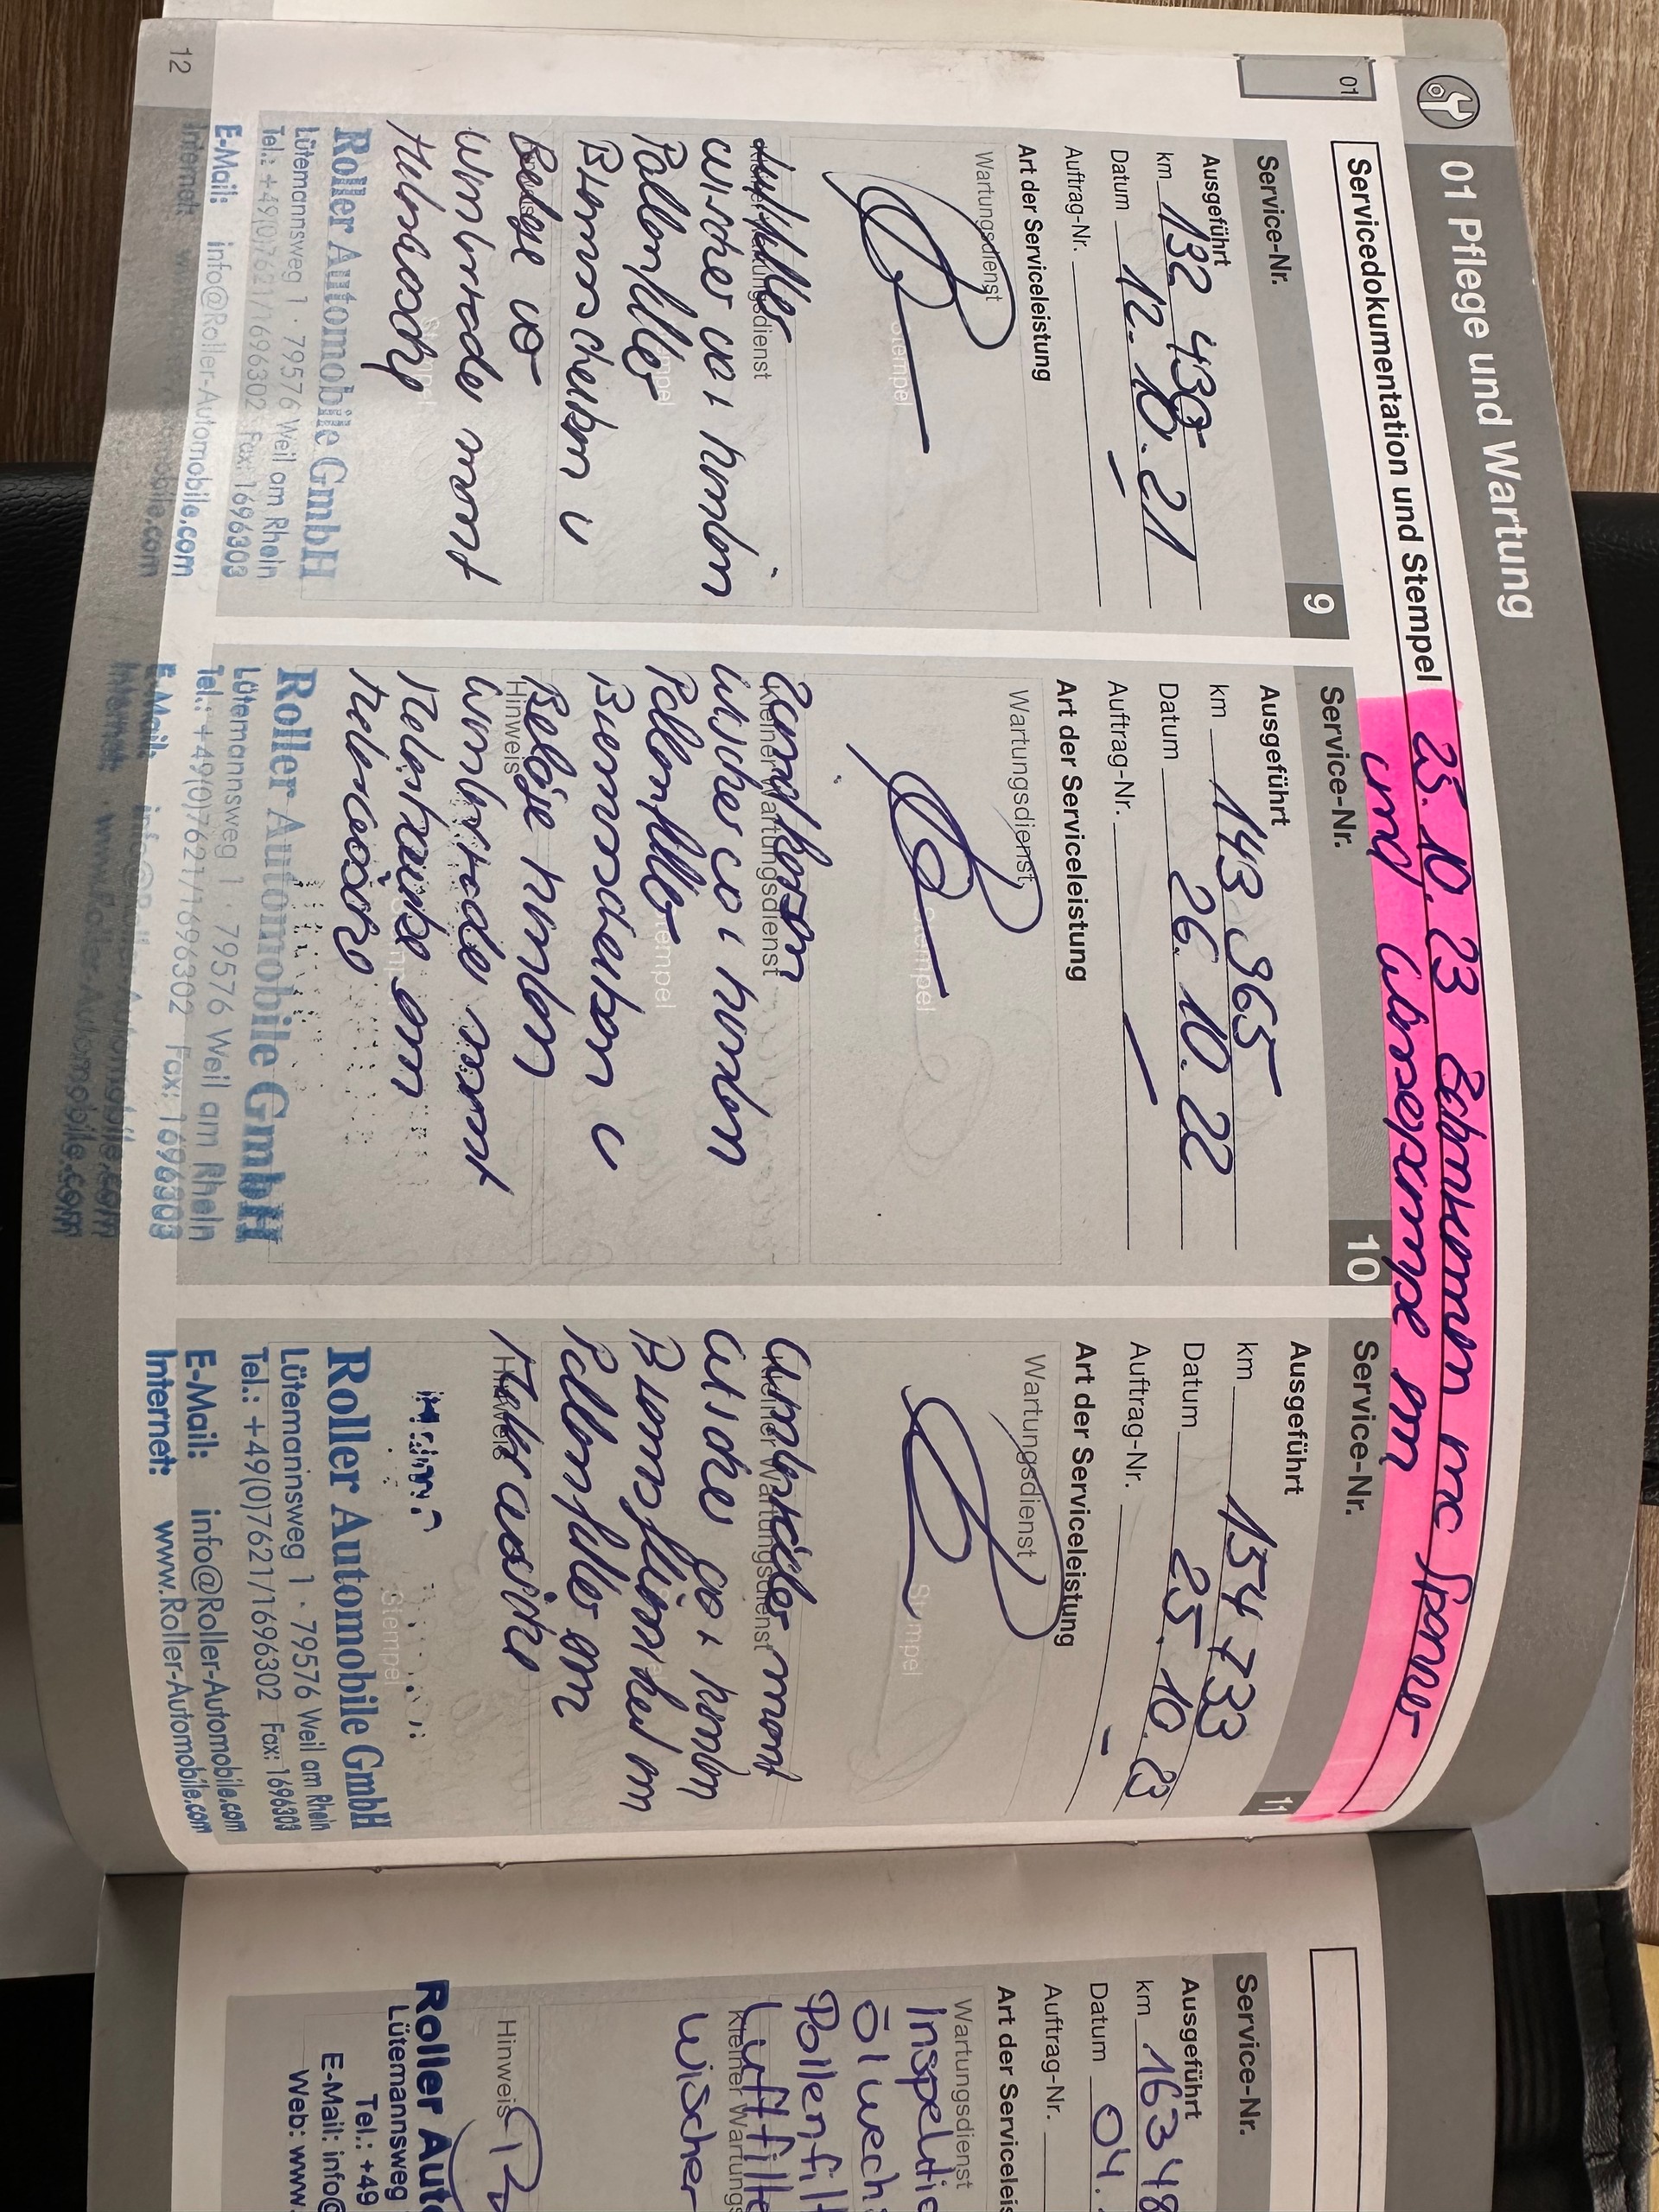 01 Pflege und Wartung
Servicedokumentation und Stempel
25.10.23 Zahnriemen
und
01
Service-Nr. 9
Ausgeführt
km 132 430
Datum 12.10.21
Auftrag-Nr. —
Art der Serviceleistung
Wartungsdienst
Stempel
Luftfilter
Kleiner Wartungsdienst
Wischer vo + hinten
Pollenfilter
Stempel
Bremsscheiben u
Beläge vo
Hinweis
Winterräder mont
Stempel
Roller Automobile GmbH
Lütemannsweg 1 · 79576 Weil am Rhein
Tel.: +49(0)7621/1696302 Fax: 1696303
E-Mail: info@Roller-Automobile.com
Internet:
Service-Nr. 10
Ausgeführt
km 143 965
Datum 26.10.22
Auftrag-Nr. —
Art der Serviceleistung
Wartungsdienst
Stempel
Zündkerzen
Kleiner Wartungsdienst
Wischer vo + hinten
Pollenfilter
Stempel
Bremsscheiben u
Beläge hinten
Hinweis
Winterräder mont
Stempel
Roller Automobile GmbH
Lütemannsweg 1 · 79576 Weil am Rhein
Tel.: +49(0)7621/1696302 Fax: 1696303
E-Mail: info@Roller-Automobile.com
Internet: www.Roller-Automobile.com
Service-Nr. 11
Ausgeführt
km 154 733
Datum 25.10.23
Auftrag-Nr. —
Art der Serviceleistung
Wartungsdienst
Stempel
Winterräder mont
Kleiner Wartungsdienst
Wischer vo + hinten
Pollenfilter
Hinweis
Stempel
Roller Automobile GmbH
Lütemannsweg 1 · 79576 Weil am Rhein
Tel.: +49(0)7621/1696302 Fax: 1696303
E-Mail: info@Roller-Automobile.com
Internet: www.Roller-Automobile.com
12
Service-Nr.
Ausgeführt
km 16348
Datum 04.
Auftrag-Nr.
Art der Serviceleis
Wartungsdienst
Inspektio
Ölwechs
Pollenfilt
Luftfilte
Kleiner Wartungs
Wischer
Hinweis
Roller Auto
Lütemannsweg
Tel.: +49
E-Mail: info@
Web: www.